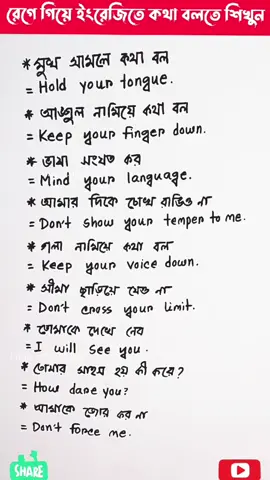 রেগে গিয়ে ইংরেজিতে কথা বলতে শিখুন
* মুখ সামলে কথা বল
= Hold your tongue.
* আঙ্গুল নামিয়ে কথা বল
= Keep your finger down.
* ভাষা সংযত কর
= Mind your language.
* আমার দিকে চোখ রাঙিও না
= Don't show your temper to me.
* গলা নামিয়ে কথা বল
= Keep your voice down.
* সীমা ছাড়িয়ে যেও না
= Don't cross your limit.
* তোমাকে দেখে নেব
= I will see you.
* তোমার সাহস হয় কী করে?
= How dare you?
* আমাকে জোর কর না
= Don't force me.
SHARE